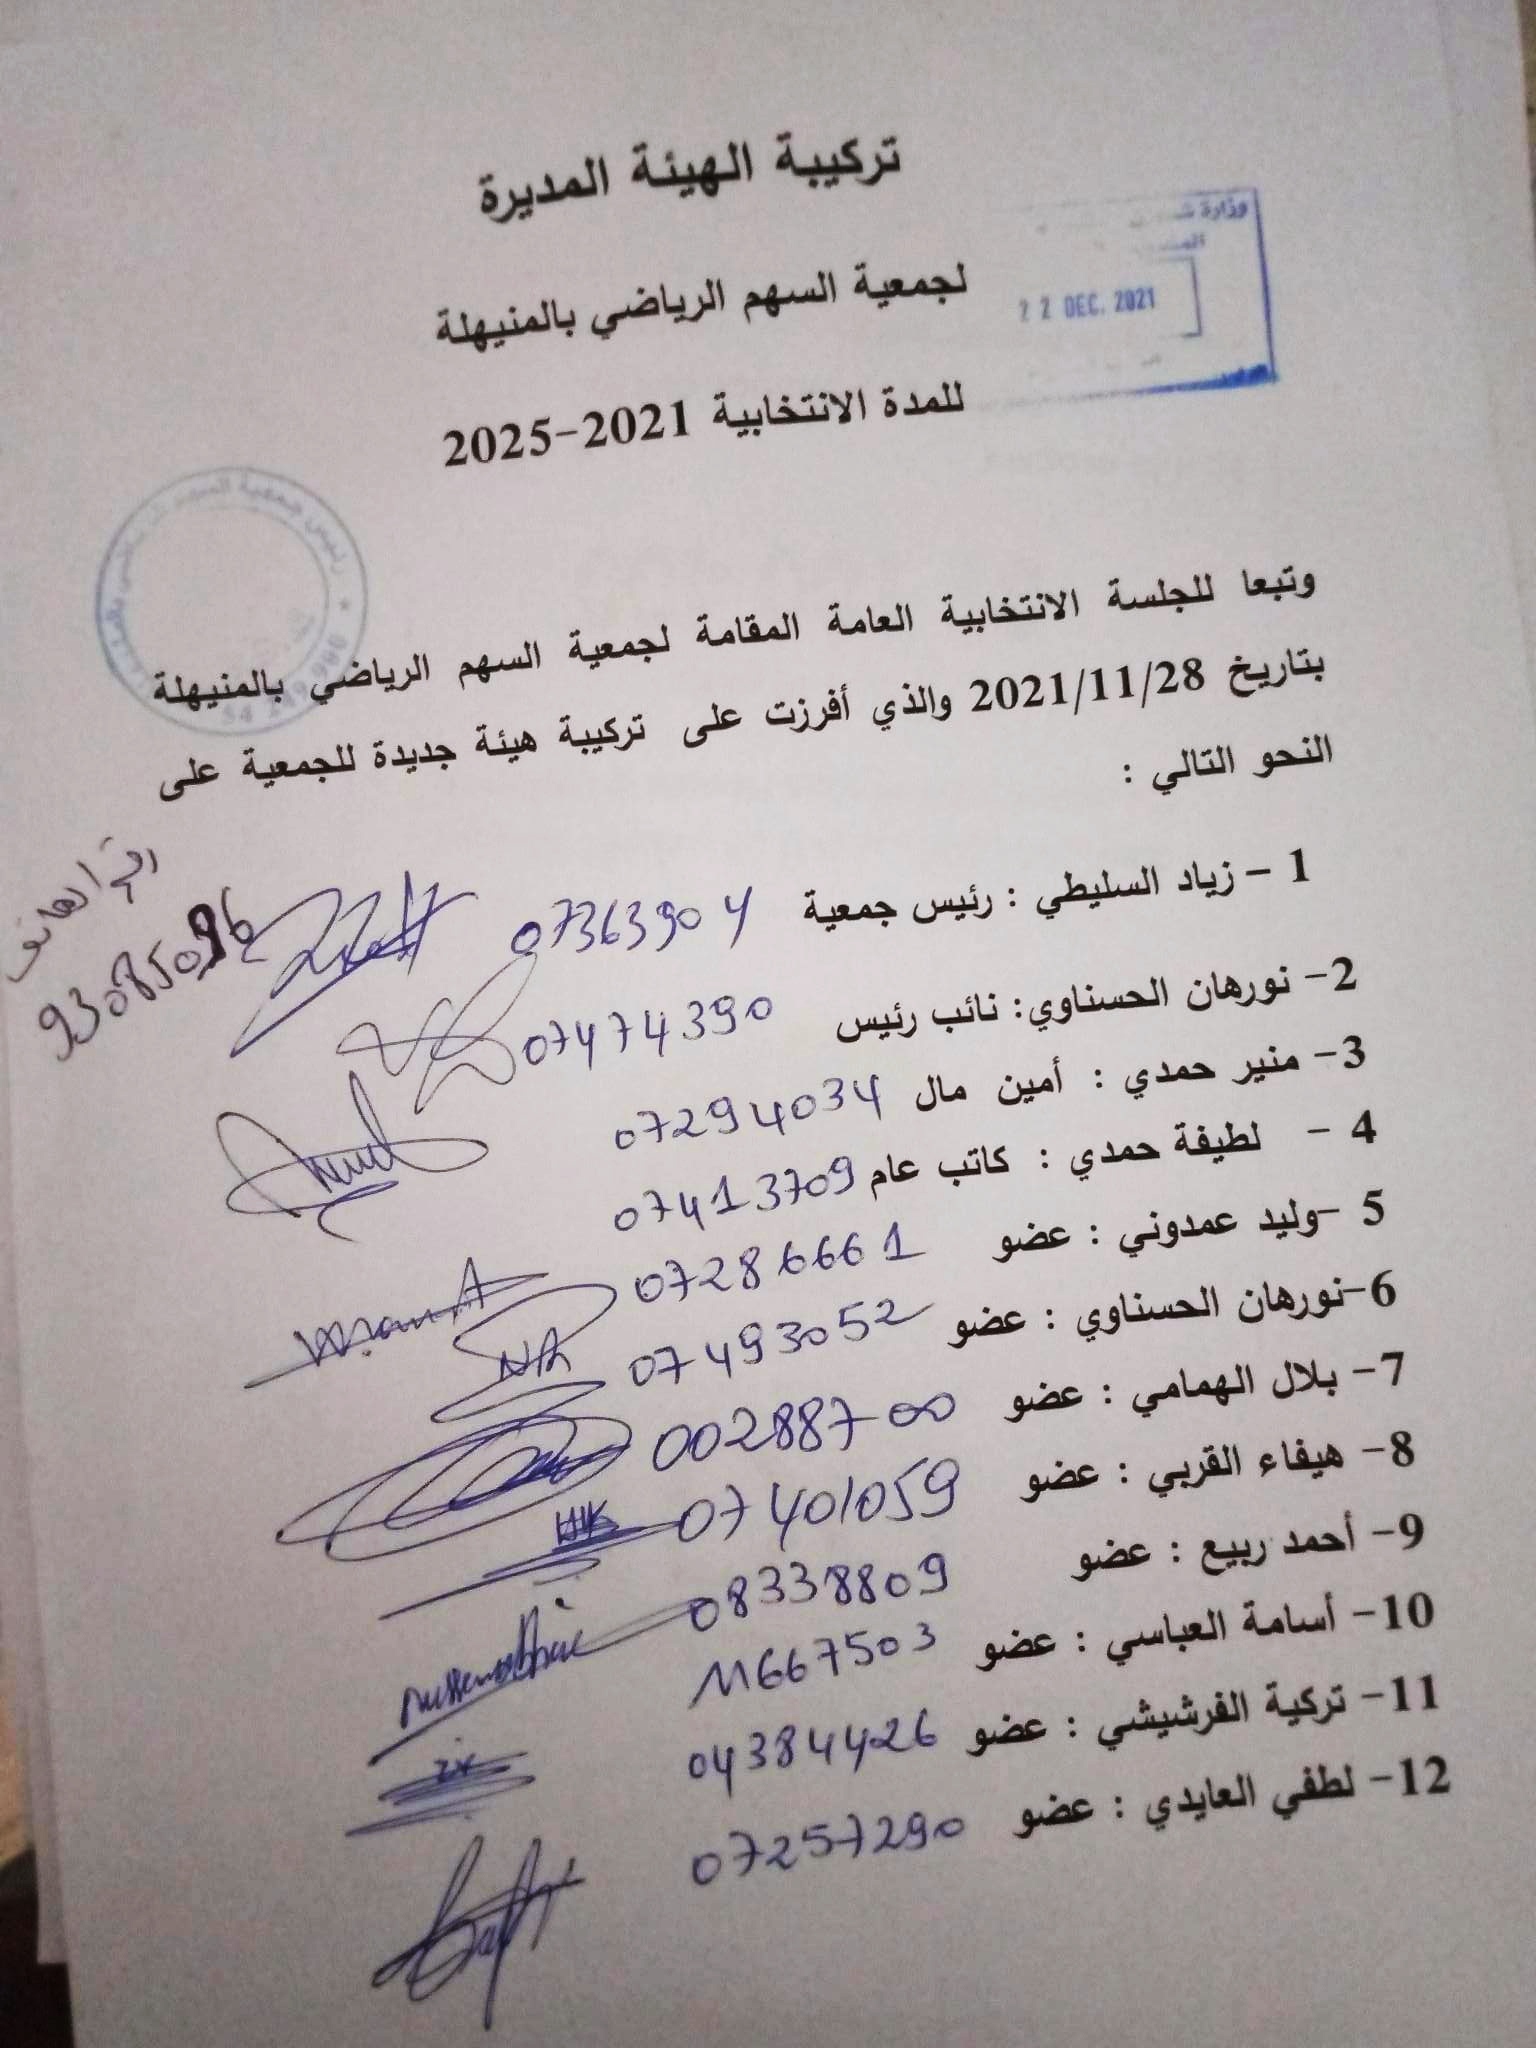 تركيبة الهيئة المديرة
وزارة
لجمعية السهم الرياضي بالمنيهلة
22 DEC. 2021
للمدة الانتخابية 2021-2025
رئيس جمعية السهم
وتبعا للجلسة الانتخابية العامة المقامة لجمعية السهم الرياضي بالمنيهلة
بتاريخ 2021/11/28 والذي أفرزت على تركيبة هيئة جديدة للجمعية على
النحو التالي :
رقم الهاتف
1 – زياد السليطي : رئيس جمعية 07363904
2- نورهان الحسناوي: نائب رئيس 07474390
3- منير حمدي : أمين مال 07294034
4 - لطيفة حمدي : كاتب عام 07413709
5 -وليد عمدوني : عضو 07286661
6-نورهان الحسناوي : عضو 07493052
7- بلال الهمامي : عضو 00288700
8- هيفاء القربي : عضو 07401059
9- أحمد ربيع : عضو 08338809
10- أسامة العباسي : عضو 11667503
11- تركية الفرشيشي : عضو 04384426
12- لطفي العايدي : عضو 07257290